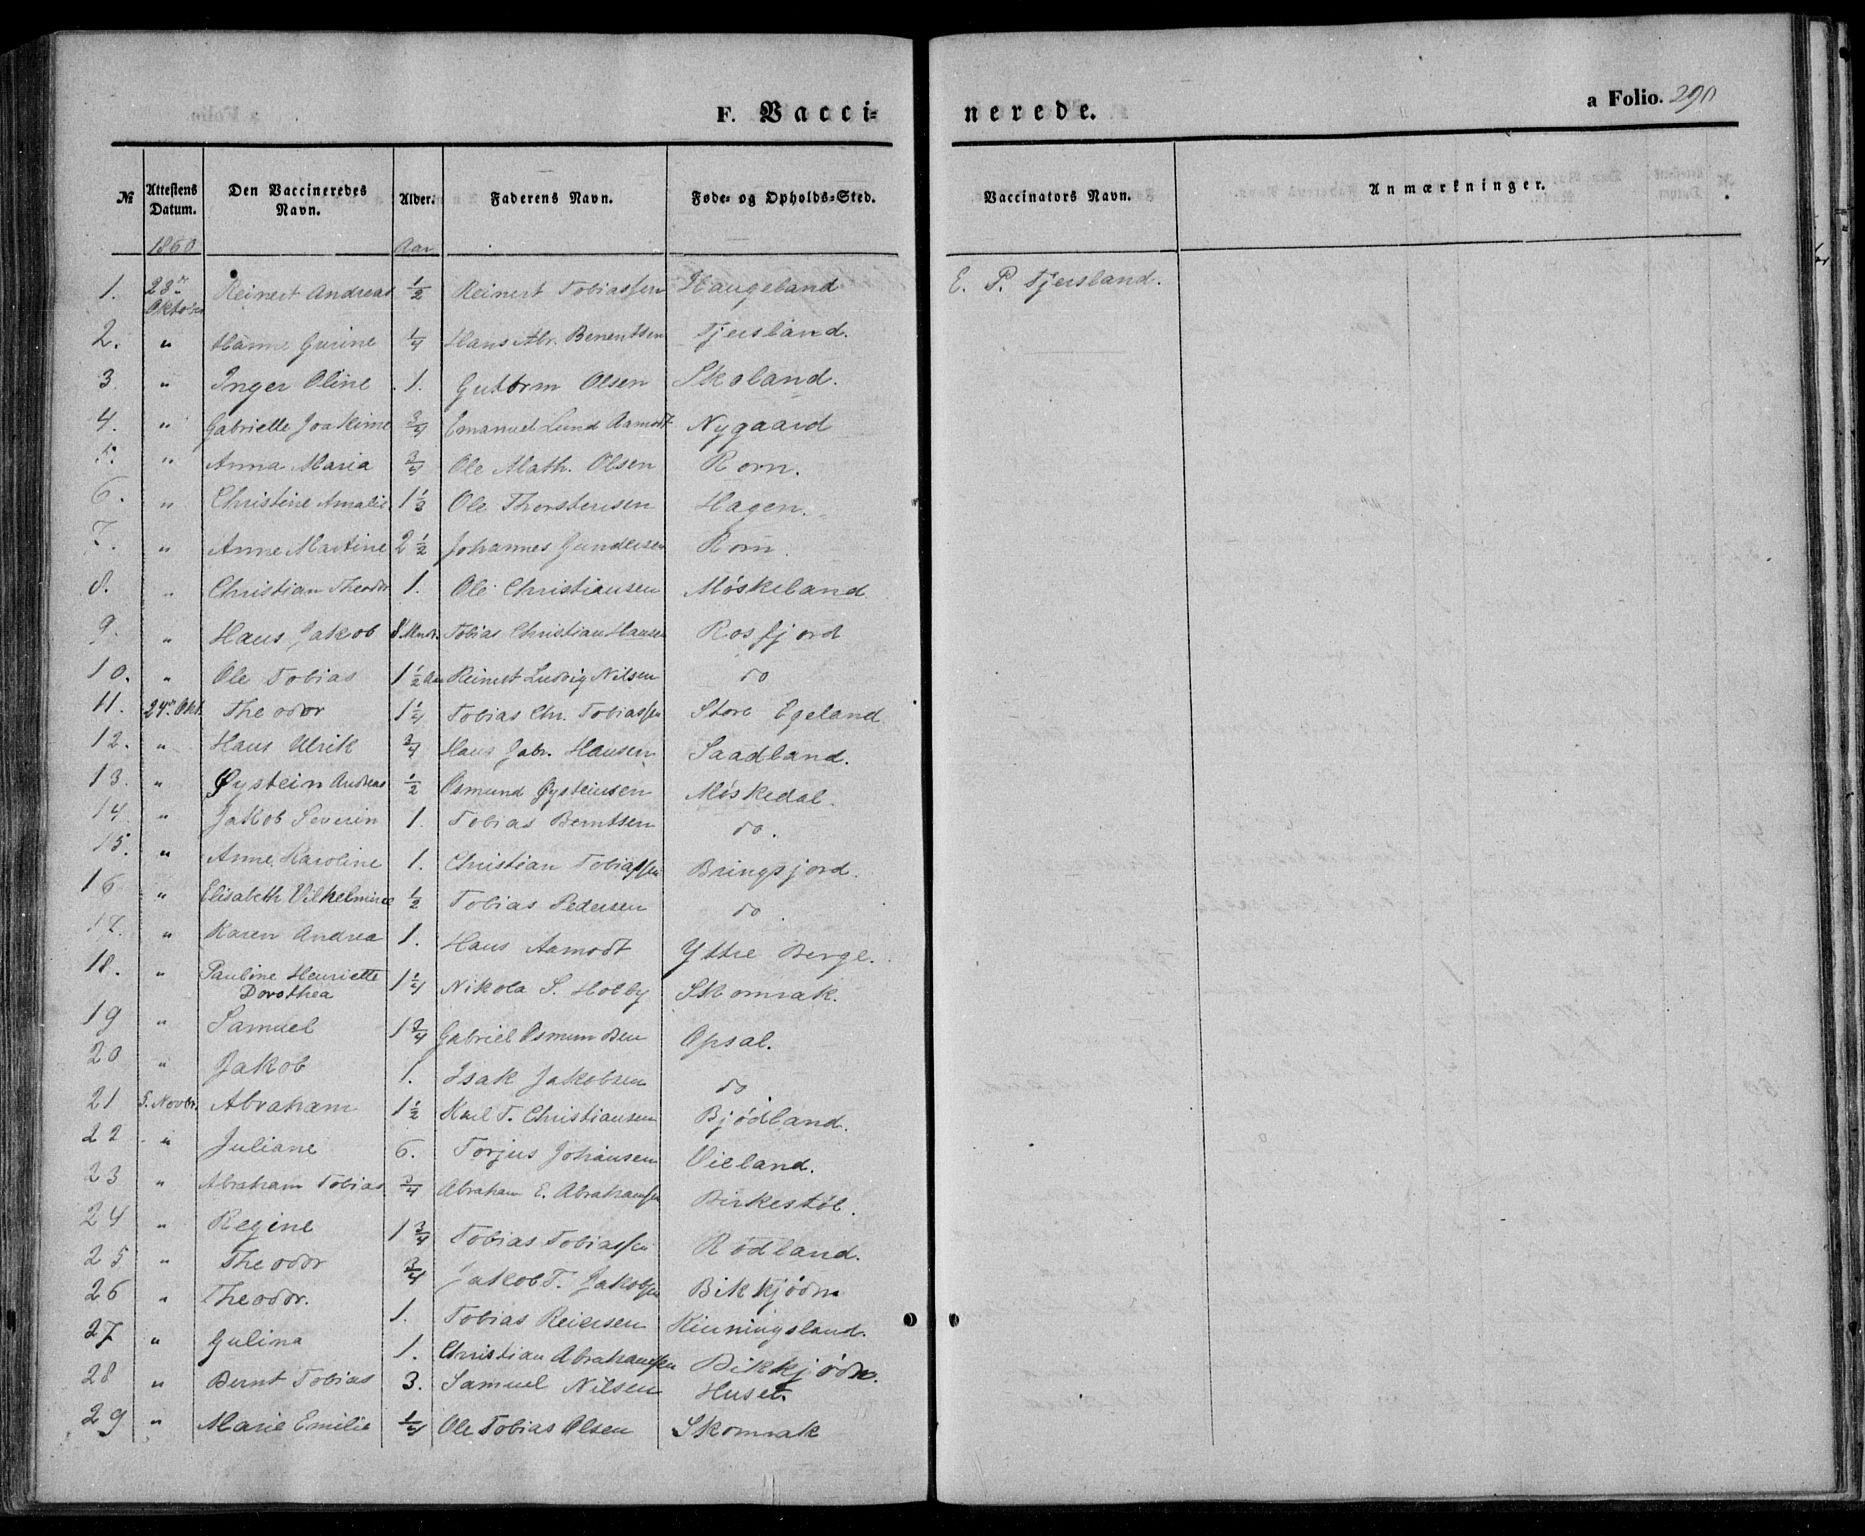 F. Vacci= nerede. a Folio. 290
№ Attestens Datum. Den Vaccineredes Navn. Alder. Faderens Navn. Føde- og Opholds-Sted. Vaccinators Navn. Anmærkninger.
1860 Aar
1. 23de Oktober Reinert Andreas 1/2 Reinert Tobiassen Haugeland E. P. Tjersland.
2. " Hanne Gurine 1/4 Hans Abr. Berentsen Tjersland.
3. " Inger Oline 1. Guttorm Olsen Skoland.
4. " Gabrielle Joakime 3/4 Emanuel Lund Aamodt Nygaard
5. " Anna Maria 3/4 Ole Math. Olsen Rom.
6. " Christine Amalie 1 1/2 Ole Thorstensen Hagen.
7. " Anne Martine 2 1/2 Johannes Gundersen Rom.
8. " Christian Theodor 1. Ole Christiansen Møskeland
9. " Hans Jakob 8 Mndr. Tobias Christian Hansen Rosfjord
10. " Ole Tobias 1 1/2 Aar Reinert Ludvig Nilsen do
11. 24de Okt. Theodor 1 1/4 Tobias Chr. Tobiassen Store Egeland
12. " Hans Ulrik 3/4 Hans Jabr. Hansen Saadland.
13. " Øystein Andreas 1/2 Osmund Øysteinsen Møskedal.
14. " Jakob Severin 1. Tobias Berntsen do.
15. " Anne Karoline 1. Christian Tobiassen Bringsjord.
16 " Elisabeth Vilhelmine 1/2 Tobias Pedersen do.
17. " Karen Andrea 1. Hans Aamodt Yttre Berge.
18. " Pauline Henriette 1 1/4 Nikola S. Holby Skomrak.
Dorothea
19 " Samuel 1 3/4 Gabriel Osmundsen Opsal.
20 " Jakob 1. Isak Jakobsen do
21 5. Novbr. Abraham 1 1/2 Karl T. Christiansen Bjødland.
22 " Juliane 6. Torjus Johansen Vieland.
23 " Abraham Tobias 3/4 Abraham E. Abrahamsen Birkestøl.
24 " Regine 1 3/4 Tobias Tobiassen Rødland.
25 " Theodor 3/4 Jakob T. Jakobsen Bikkjødn
26 " Theodor. 1. Tobias Reiersen Kinningsland.
27 " Gulina 1. Christian Abrahamsen Bikkjødn.
28 " Bernt Tobias 3. Samuel Nilsen Huset.
29 " Marie Emilie 1/4 Ole Tobias Olsen Skomrak